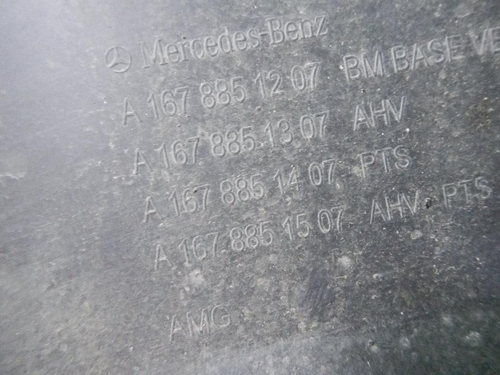 Mercedes-Benz
A 167 885 12 07 BM BASE
A 167 885 13 07 AHV
A 167 885 14 07 PTS
A 167 885 15 07 AHV PTS
AMG